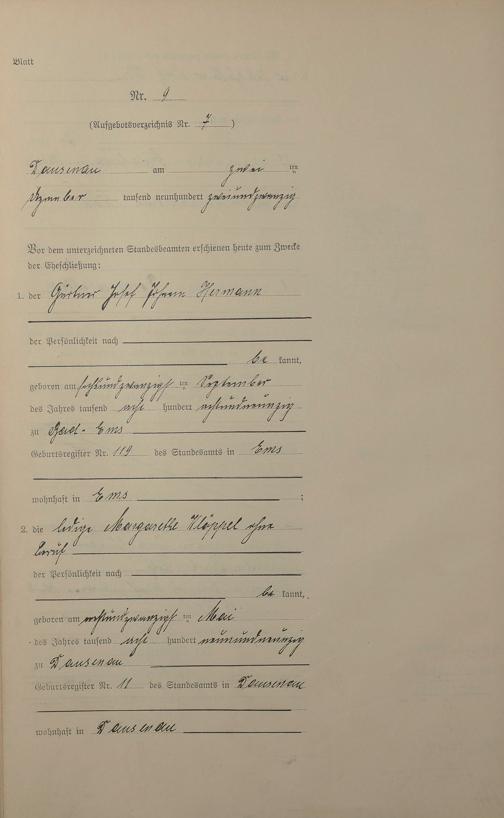 Blatt
Nr. 9
(Aufgebotsverzeichnis Nr. 7)
Dausenau am zwei ten
Dezember tausend neunhundert zweiundzwanzig
Vor dem unterzeichneten Standesbeamten erschienen heute zum Zwecke
der Eheschließung:
1. der Gärtner Josef Johann Hermann
der Persönlichkeit nach
be kannt,
geboren am sechsundzwanzigsten September
des Jahres tausend acht hundert achtundneunzig
zu Bad-Ems
Geburtsregister Nr. 119 des Standesamts in Ems
wohnhaft in Ems ;
2. die ledige Margarethe Klöppel ohne
Beruf
der Persönlichkeit nach
be kannt,
geboren am achtundzwanzigsten Mai
des Jahres tausend acht hundert neunundneunzig
zu Dausenau
Geburtsregister Nr. 11 des Standesamts in Dausenau
wohnhaft in Dausenau